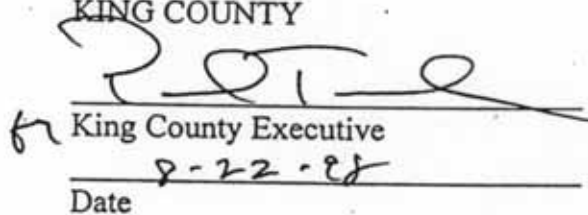 KING COUNTY
for King County Executive
8-22-98
Date